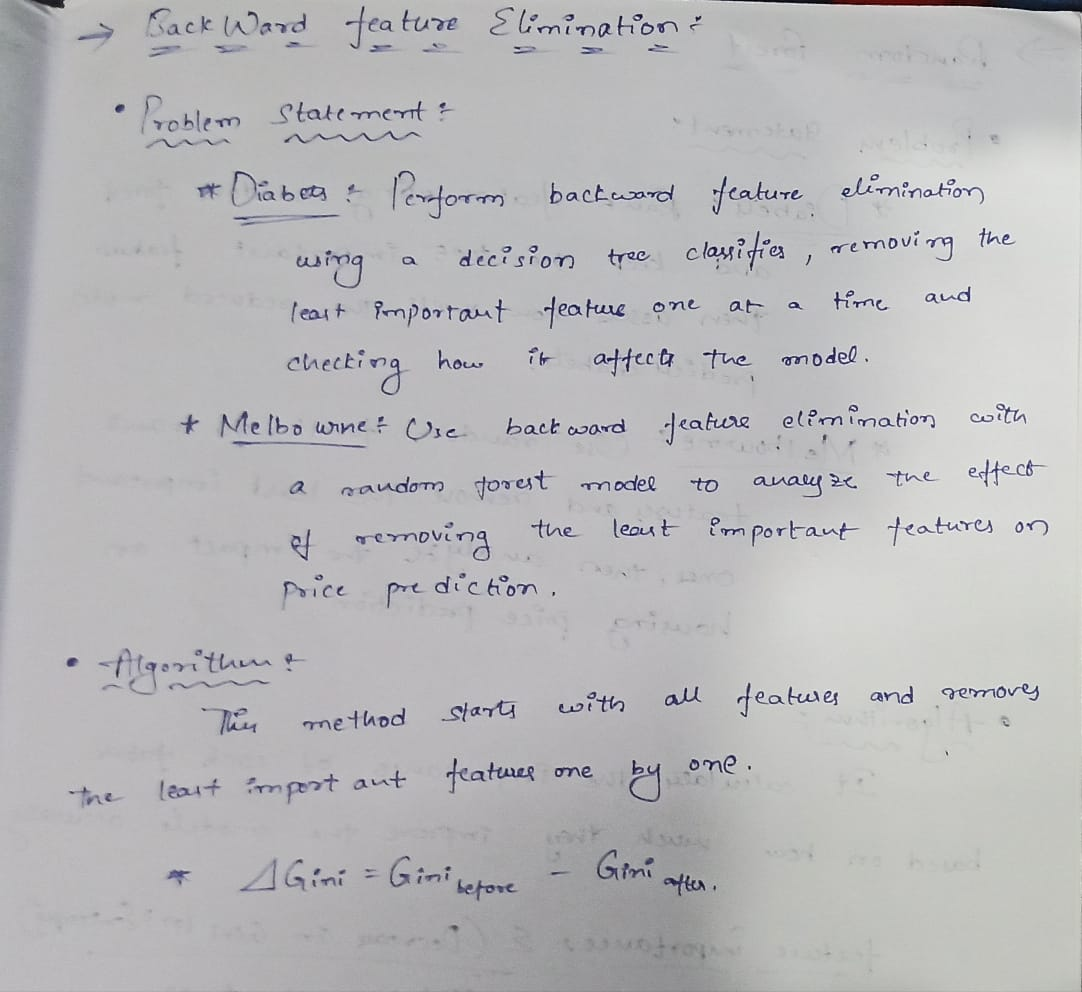 → BackWard feature Elimination:
• Problem Statement:
* Diabets: Perform backward feature elimination
using a decision tree classifies, removing the
least important feature one at a time and
checking how it affects the model.
* Melbourne: Use backward feature elimination with
a random forest model to analyze the effect
of removing the least important features on
price prediction.
• Algorithm:
This method starts with all features and removes
the least important features one by one.
* ΔGini = Gini before - Gini after.